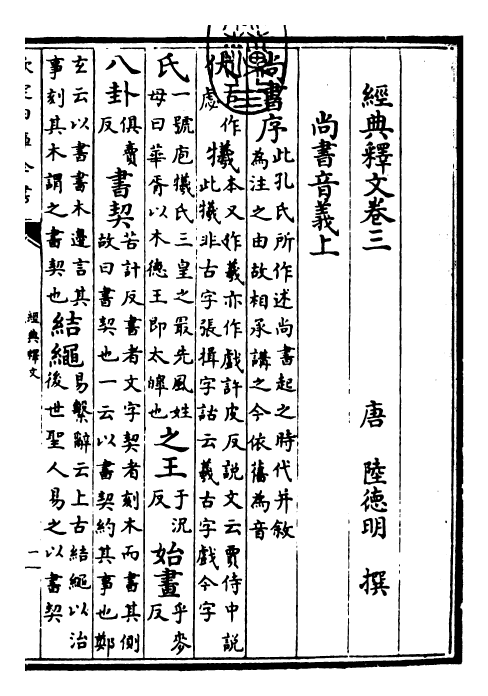 經典釋文卷三　唐　陸德明　撰
尚書音義上
尚書序
此孔氏所作述尚書起之時代并敘
為注之由故相承講之今依舊為音
伏
古作
虙
犧
本又作羲亦作戲許皮反説文云賈侍中説
此犧非古字張揖字詁云羲古字戲今字
氏
一號庖犧氏三皇之最先風姓
母曰華胥以木德王即太皥也
之王
于況
反
始畫
乎麥
反
八卦
俱賣
反
書契
苦計反書者文字契者刻木而書其側
故曰書契也一云以書契約其事也鄭
玄云以書書木邊言其
事刻其木謂之書契也
結繩
易繫辭云上古結繩以治
後世聖人易之以書契
經典釋文
一